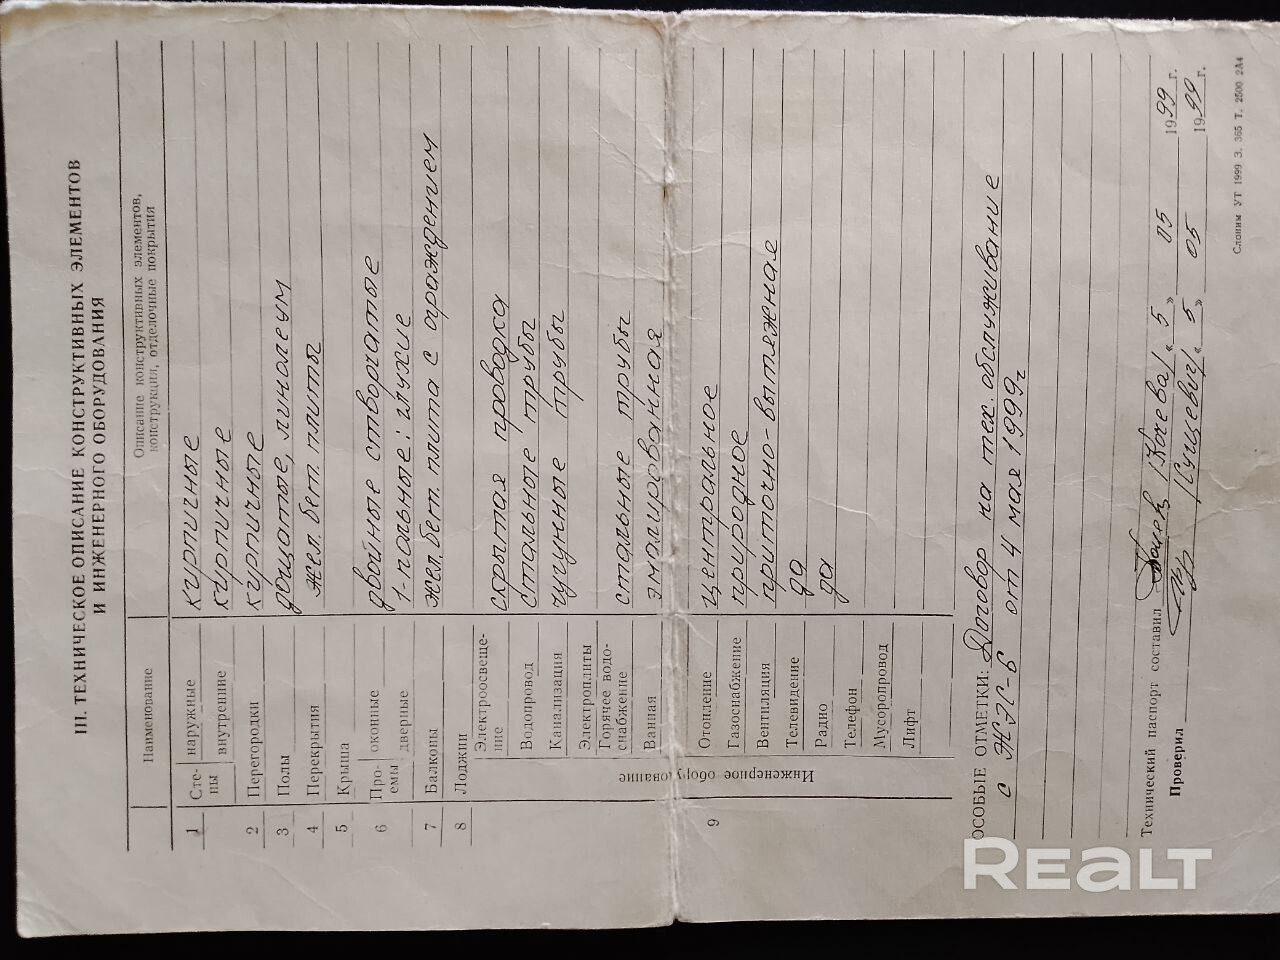 III. ТЕХНИЧЕСКОЕ ОПИСАНИЕ КОНСТРУКТИВНЫХ ЭЛЕМЕНТОВ
И ИНЖЕНЕРНОГО ОБОРУДОВАНИЯ
Наименование
Описание конструктивных элементов,
конструкция, отделочные покрытия
1 Сте- наружные кирпичные
ны внутренние кирпичные
2 Перегородки кирпичные
3 Полы дощатые, линолеум
4 Перекрытия жел. бет. плиты
5 Крыша
6 Про- оконные двойные створчатые
емы дверные 1-польные: глухие
7 Балконы жел. бет. плита с ограждением
8 Лоджии
9 Инженерное оборудование
Электроосвеще-
ние скрытая проводка
Водопровод стальные трубы
Канализация чугунные трубы
Электроплиты
Горячее водо-
снабжение стальные трубы
Ванная эмалированная
Отопление центральное
Газоснабжение природное
Вентиляция приточно-вытяжная
Телевидение да
Радио да
Телефон
Мусоропровод
Лифт
ОСОБЫЕ ОТМЕТКИ: Договор на тех. обслуживание
с ЖЭС-6 от 4 мая 1999г
Технический паспорт составил /Кочева/ « 5 » 05 1999 г.
Проверил « 5 » 05 1999 г.
Слоним УТ 1999 З. 365 Т. 2500 2А4
REALT